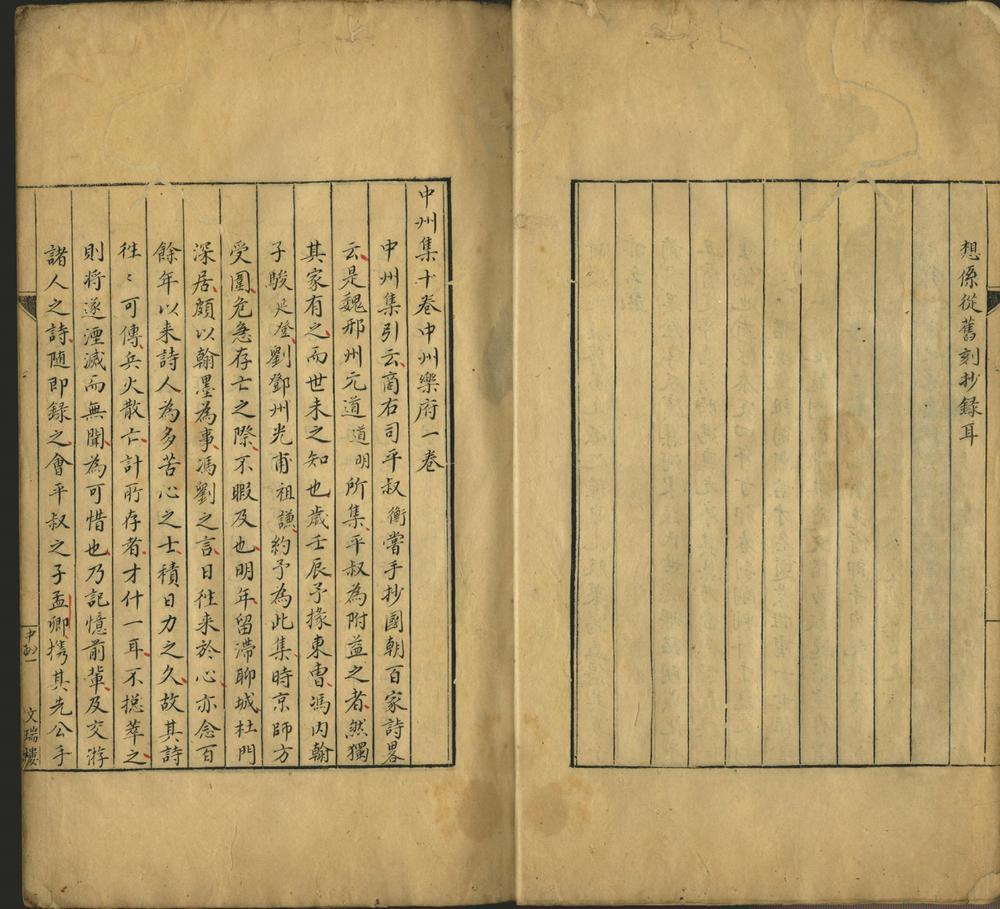 想係從舊刻抄錄耳
中州集十卷中州樂府一卷
中州集引云商右司平叔衡嘗手抄國朝百家詩畧
云是魏邢州元道道明所集平叔為附益之者然獨
其家有之而世未之知也歲壬辰予掾東曹馮内翰
子駿延登劉鄧州光甫祖謙約予為此集時京師方
受圍危急存亡之際不暇及也明年留滯聊城杜門
深居頗以翰墨為事馮劉之言日徃来於心亦念百
餘年以来詩人為多苦心之士積日力之久故其詩
徃〻可傳兵火散亡計所存者才什一耳不揔萃之
則將遂湮滅而無聞為可惜也乃記憶前輩及交游
諸人之詩随即録之會平叔之子孟卿携其先公手
文瑞樓